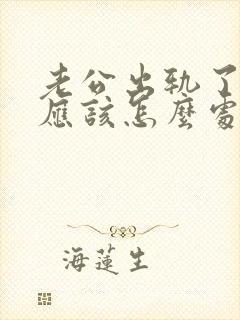 老公出轨了
應該怎麼處
海蓮生